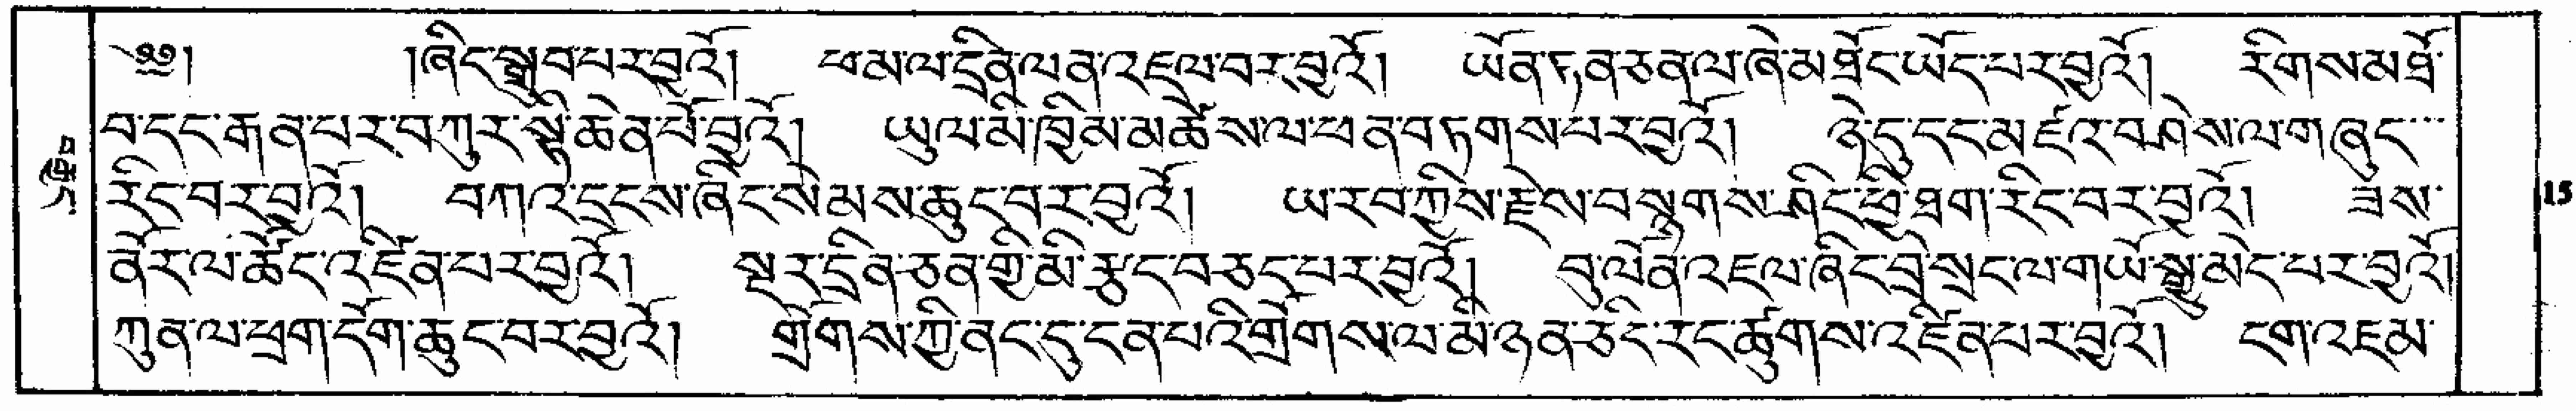 ༄༅། །ཞིང་སྒྲུབ་པར་བྱའོ། ཕ་མ་ལ་དྲིན་ལན་འཇལ་བར་བྱའོ། ཡོན་ཏན་ཅན་ལ་ཞེ་མཐོང་ཡོད་པར་བྱའོ། རིགས་མཐོ་
བ་དང་རྒན་པར་བཀུར་སྟི་ཆེན་པོ་བྱའོ། ཡུལ་མི་ཁྱིམ་མཚེས་ལ་ཕན་བཏགས་པར་བྱའོ། ཉེ་དུ་དང་མཛའ་བཤེས་ལ་གཞུང་
རིང་བར་བྱའོ། བཀའ་དྲངས་ཞིང་སེམས་ཆུང་བར་བྱའོ། ཡ་རབ་ཀྱིས་རྗེས་བསྙགས་ཤིང་ཕྱི་ཐག་རིང་བར་བྱའོ། ཟས་
ནོར་ལ་ཚོད་འཛིན་པར་བྱའོ། སྔར་དྲིན་ཅན་གྱི་མི་རྩད་བཅད་པར་བྱའོ། བུ་ལོན་འཇལ་ཞིང་བྲེ་སྲང་ལ་གཡོ་སྒྱུ་མེད་པར་བྱའོ།
ཀུན་ལ་ཕྲག་དོག་ཆུང་བར་བྱའོ། གྲོགས་ཀྱི་ནང་དུ་ངན་པའི་གྲོགས་ལ་མི་ཉན་ཅིང་རང་ཚུགས་འཛིན་པར་བྱའོ། ངག་འཇམ་
15